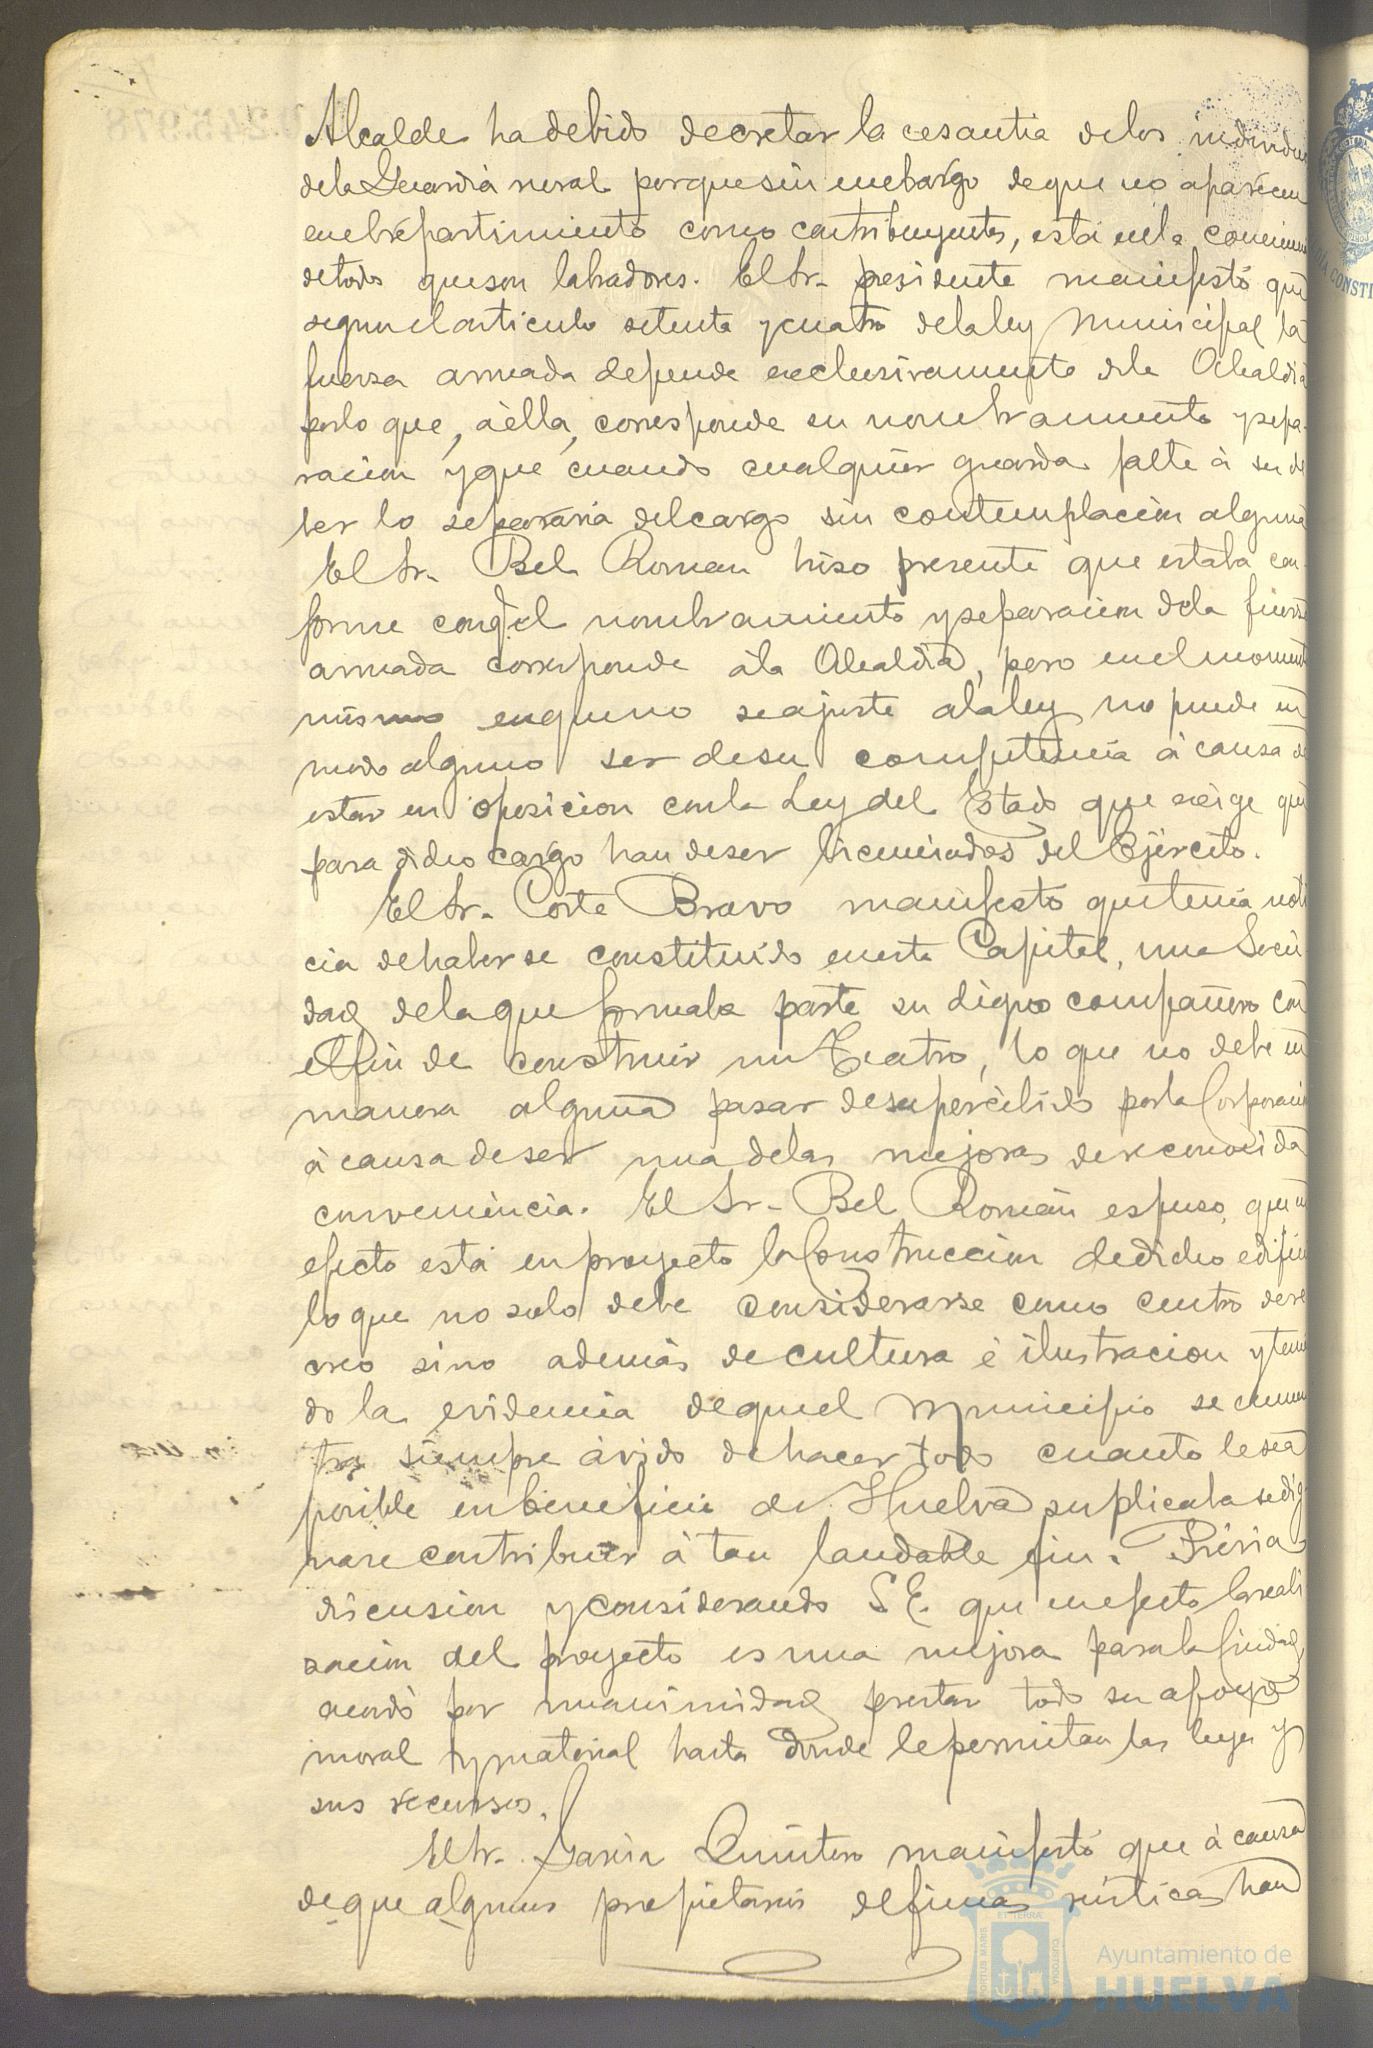 Alcalde ha debido decretar la cesantia de los individuos
de la Guardia rural porque sin embargo de que no aparecen
en el repartimiento como contribuyentes, está en la
de todos que son labradores. El Sr. presidente manifestó que
segun el articulo setenta y cuatro de la ley Municipal la
fuersa armada depende exclusivamente de la Alcaldia
por lo que, á ella, corresponde su nombramiento y sepa-
racion y que cuando cualquier guarda falte á su de
ber lo separaria del cargo sin contemplacion alguna
El Sr. Bel Roman hiso presente que estaba con-
forme con q. el nombramiento y separacion de la fuersa
armada corresponde á la Alcaldia, pero en el momento
mismo en que no se ajuste a la ley no puede en
modo alguno ser de su competencia á causa de
estar en oposicion con la Ley del Estado que exige que
para dicho cargo han de ser licenciados del Ejército.
El Sr. Corte Bravo manifestó que tenia noti
cia de haberse constituido en esta Capital, una Socie
dad de la que formaba parte su digno compañero con
el fin de construir un Teatro, lo que no debe en
manera alguna pasar desapercibido por la Corporacion
á causa de ser una de las mejoras de reconocida
conveniencia. El Sr. Bel Román espuso, que en
efecto está en proyecto la Construccion de dicho edificio
lo que no solo debe considerarse como centro de re
creo sino además de cultura é ilustracion y tenien
do la evidencia de que el Municipio se encuen
tra siempre ávido de hacer todo cuanto le sea
posible en beneficio de Huelva suplicaba se dig
nase contribuir á tan laudable fin. Prévia
discusion y considerando S. E. que en efecto la reali
zacion del proyecto es una mejora para la Ciudad,
acordó por unanimidad prestar todo su apoyo
moral y material hasta donde le permitan las leyes y
sus recursos.
El Sr. Garcia Quintero manifestó que á causa
de que algunos propietarios de fincas rústicas han
Ayuntamiento de
HUELVA